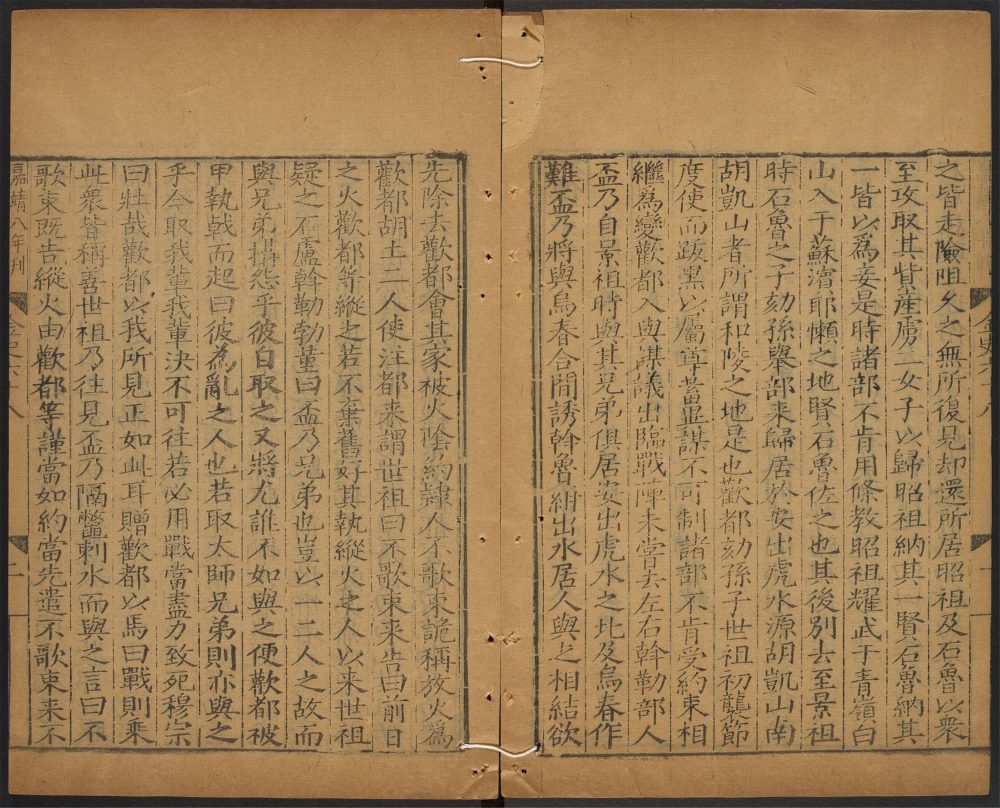 之皆走險阻久之無所復見却還所居昭祖及石魯以衆
至攻取其貲産虜二女子以歸昭祖納其一賢石魯納其
一皆以爲妾是時諸部不肯用條教昭祖耀武于青嶺白
山入于蘇濱耶懶之地賢石魯佐之也其後別去至景祖
時石魯之子劾孫舉部來歸居於安出虎水源胡凱山南
胡凱山者所謂和陵之地是也歡都劾孫子世祖初襲節
度使而跋黑以屬尊蓄異謀不可制諸部不肯受約束相
繼爲變歡都入與謀議出臨戰陣未嘗去左右斡勒部人
盃乃自景祖時與其兄弟俱居安出虎水之北及烏春作
難盃乃將與烏春合間誘斡魯紺出水居人與之相結欲
先除去歡都會其家被火陰約隸人不歌束詭稱放火爲
歡都胡土二人使注都来謂世祖曰不歌束来告曰前日
之火歡都等縱之若不棄舊好其執縱火之人以来世祖
疑之石盧斡勒勃菫曰盃乃兄弟也豈以一二人之故而
與兄弟構怨乎彼自取之又將尤誰不如與之便歡都被
甲執戟而起曰彼為亂之人也若取太師兄弟則亦與之
乎今取我輩我輩決不可往若必用戰當盡力致死穆宗
曰壯哉歡都以我所見正如此耳贈歡都以馬曰戰則乗
此衆皆稱善世祖乃往見盃乃隔鼈刺水而與之言曰不
歌束既告縱火由歡都等謹當如約當先遣不歌束来不
嘉靖八年刊
金史六十八
二